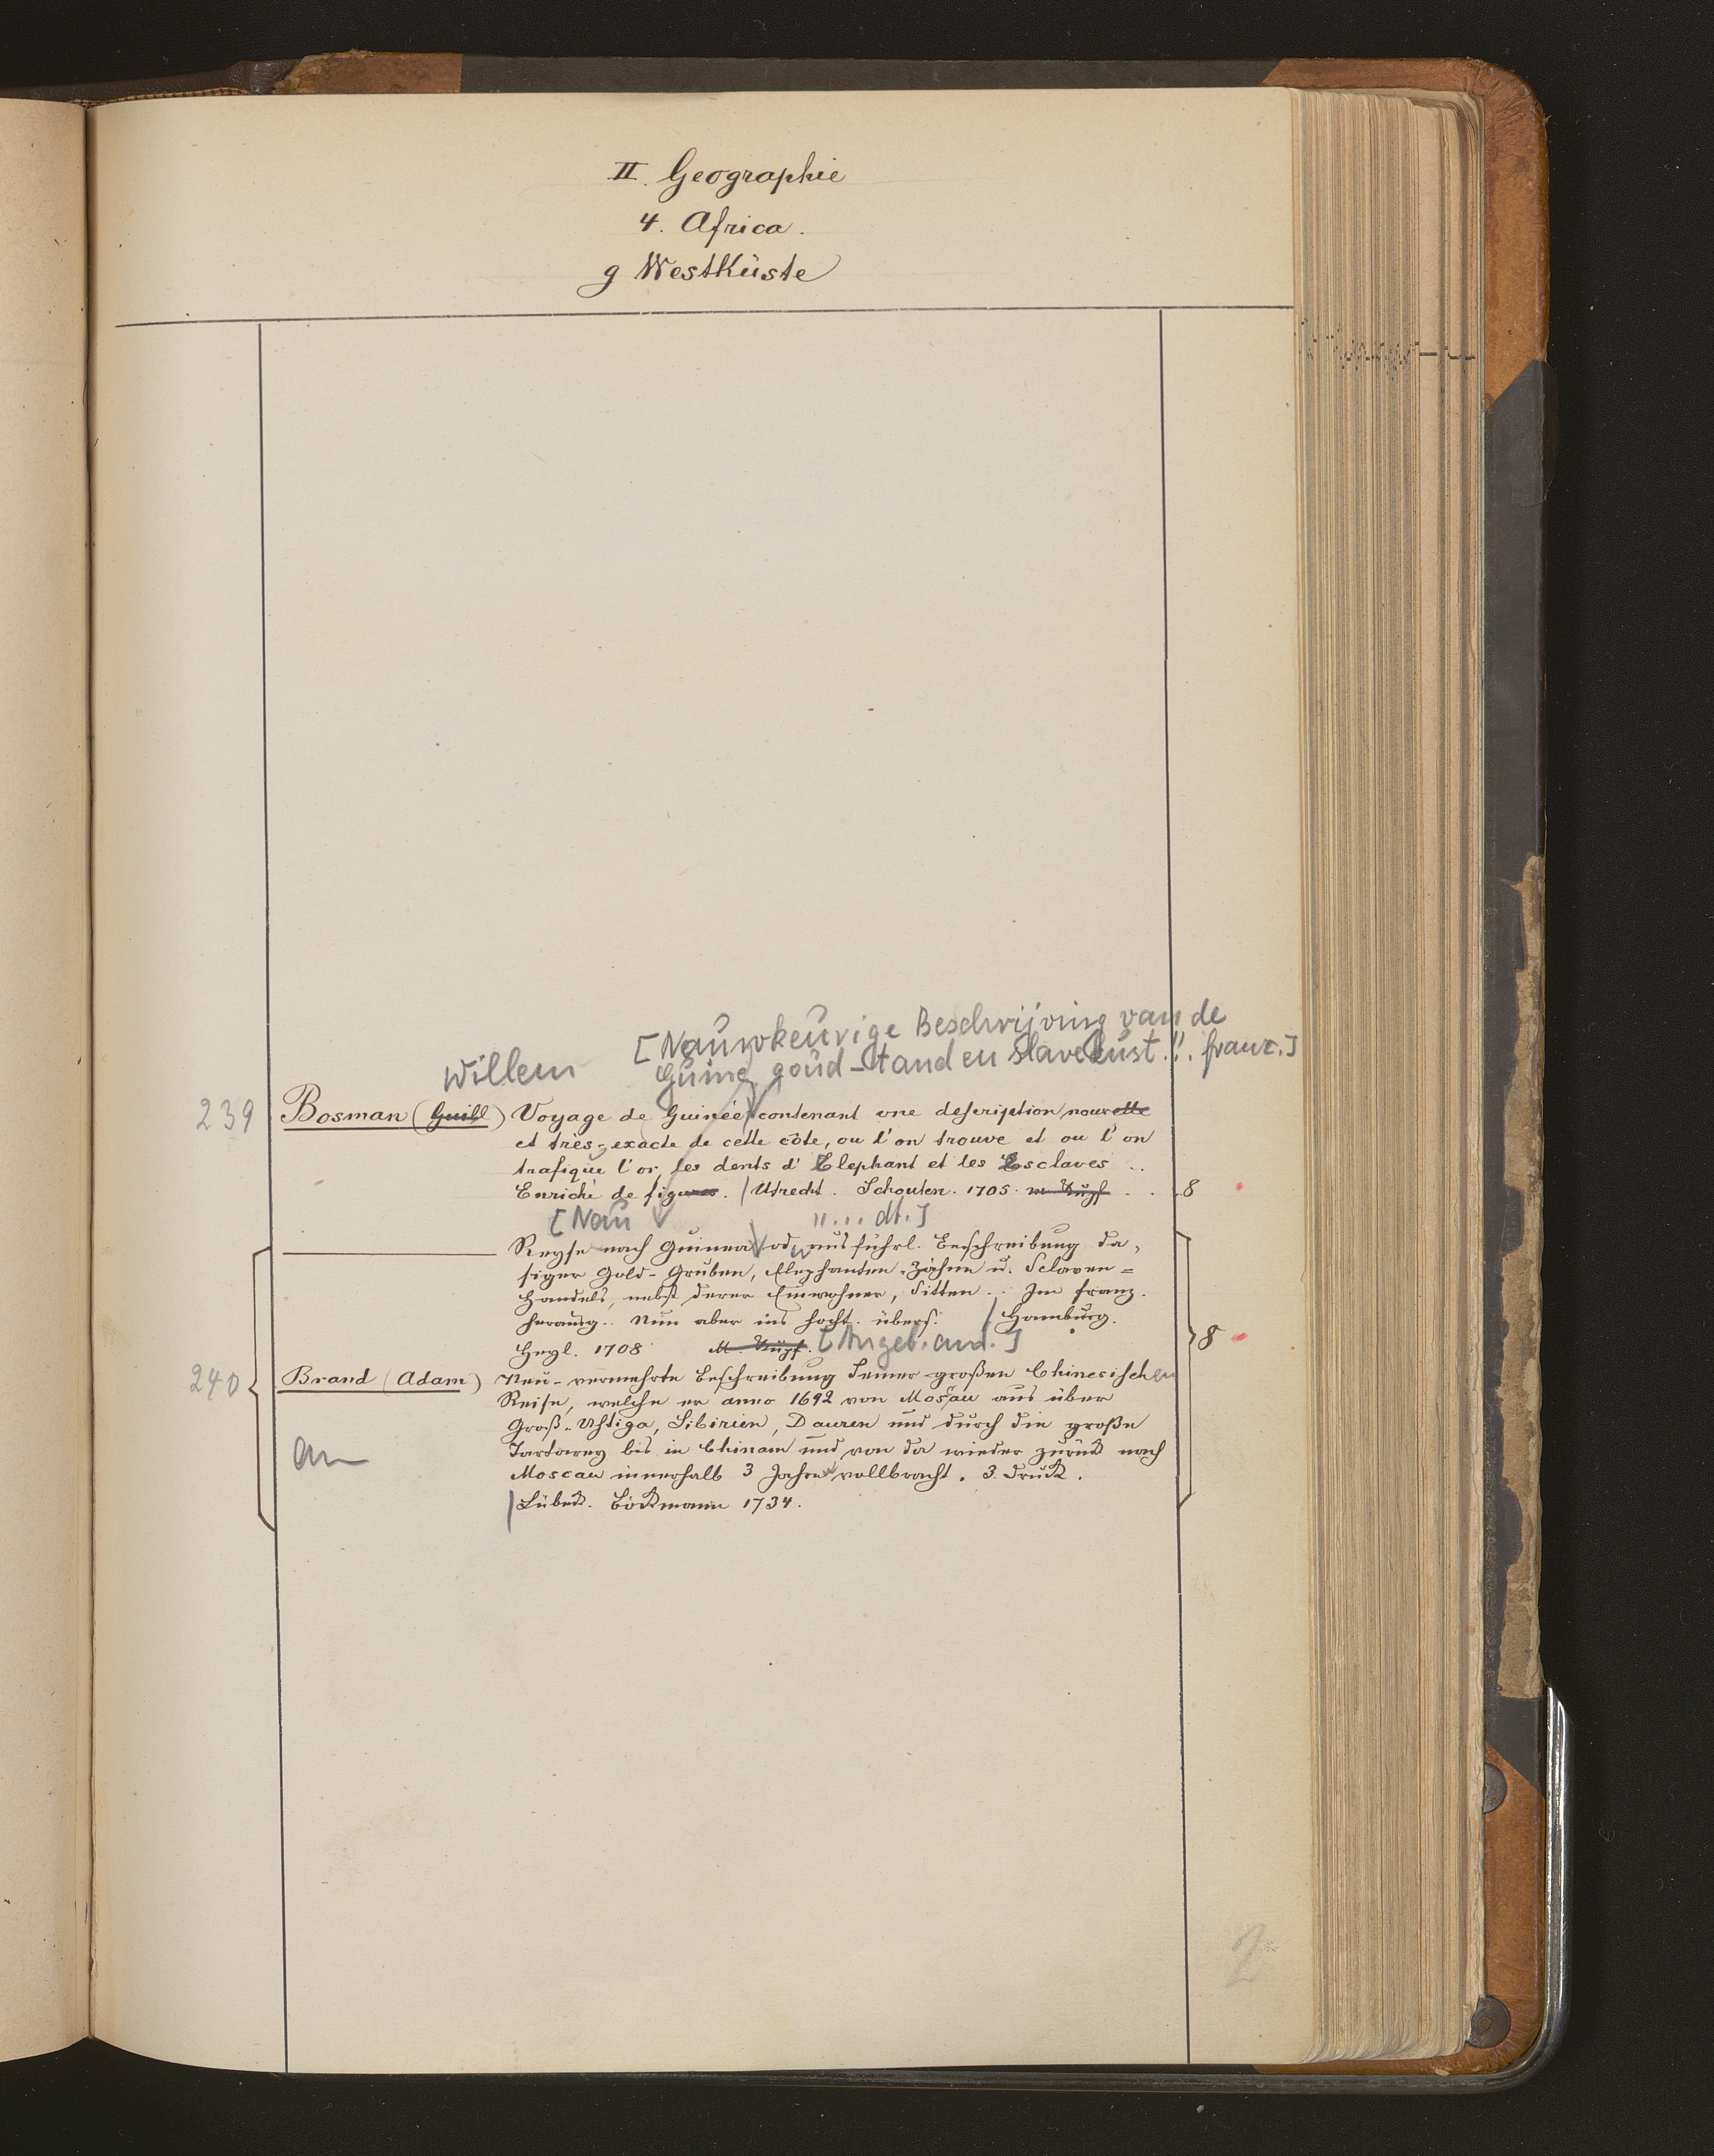 II. Geographie
4. Africa.
g Westküste
[Nauwkeurige Beschrijving van de
Willem
Guinea goud-tand en Slavekust.!. franz.]
239 Bosman (Guill) Voyage de Guinée contenant une description nouvelle
et très-exacte de cette côte, ou l'on trouve et ou l'on
trafique l'or, les dents d'Elephant et les Esclaves ..
Enriché de figures. | Utrecht. Schouten. 1705. m Kupf . . 8
[Nau "... dt.]
Reyse nach Guinea od. ausführl. Beschreibung da-
siger Gold-Gruben, Elephanten-Zähne u. Sclaven=
Handels, nebst derer Einwohner, Sitten .. Im franz.
herausg.. Nun aber ins hocht. übers. / Hamburg.
Heyl. 1708 M. Kupf. [Angeb. and.] 8
240 Brand (Adam) Neu-vermehrte Beschreibung Seiner großen Chinesischen
Reise, welche er anno 1692 von Moscau aus über
Groß-Ustiga, Sibirien, Dauren und durch die große
an
Tartarey bis in Chinam und von da wieder zurück nach
Moscau innerhalb 3 Jahren vollbracht. 3. Druck.
| Lübeck. Böckmann 1734.
2